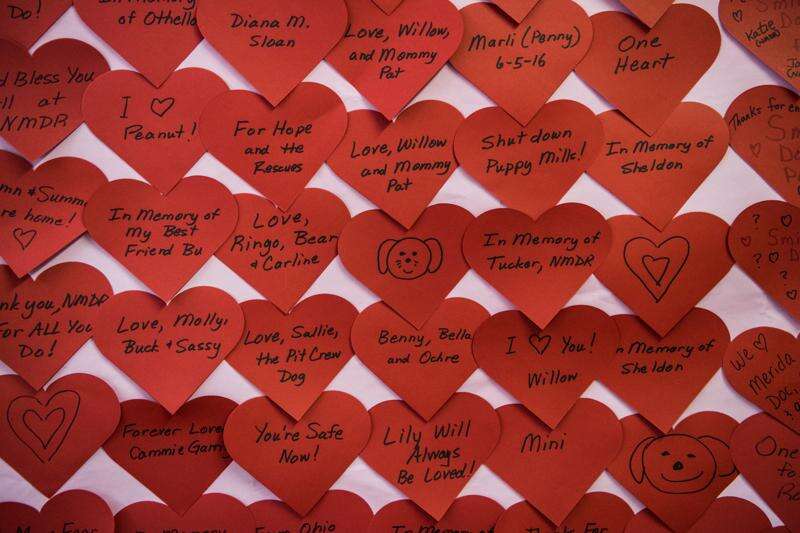 Do!
In Memory
of Othello
Diana M.
Sloan
Love, Willow,
and Mommy
Pat
Marli (Penny)
6-5-16
One
Heart
Katie
Bless You
at
NMDR
I ♡
Peanut!
For Hope
and the
Rescues
Love, Willow
and Mommy
Pat
Shut down
Puppy Mills!
In Memory of
Sheldon
Thanks for
mn & Summ
re home!
In Memory of
my Best
Friend Bu
Love,
Ringo, Bear
& Carline
In Memory of
Tucker, NMDR
? ?
? ?
nk you, NMDR
For ALL You
Do!
Love, Molly,
Buck & Sassy
Love, Sallie,
the Pit Crew
Dog
Benny, Bella
and Ochre
I ♡ You!
Willow
n Memory of
Sheldon
We ♡
Merida
Forever Love
Cammie Gam
You're Safe
Now!
Lily Will
Always
Be Loved!
Mini
One
to
Ohio
In Memory
For